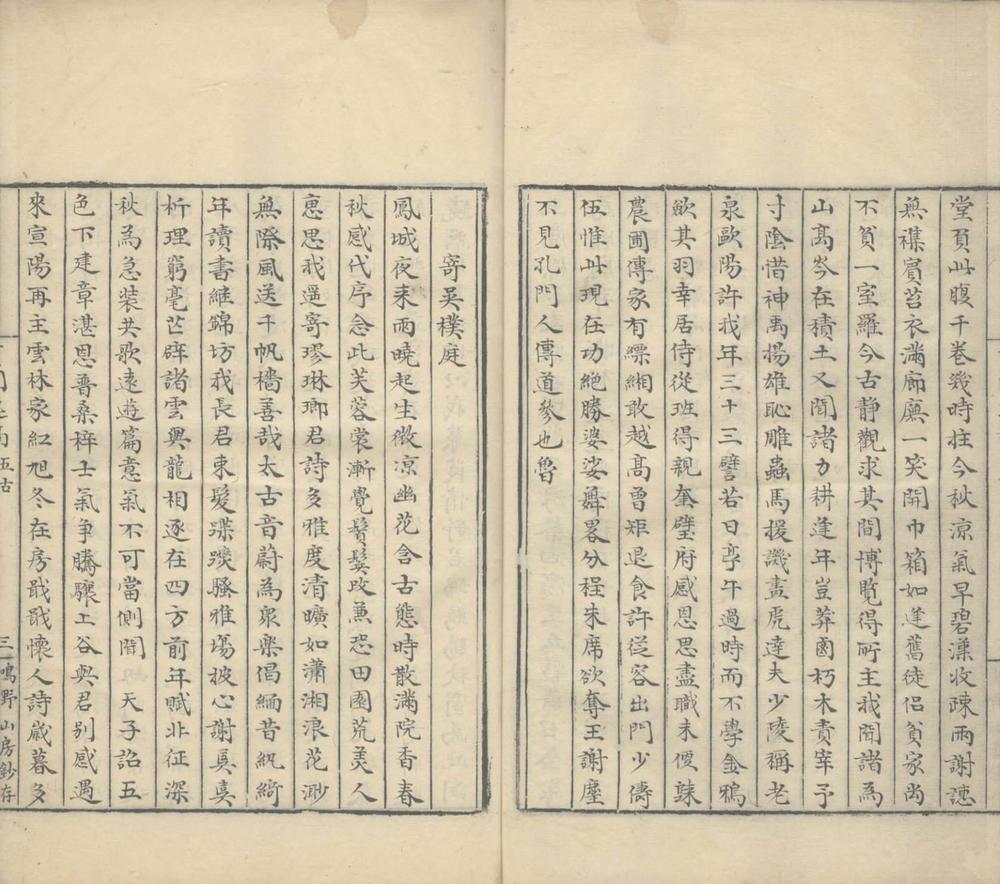 堂頁此腹千卷幾時拄今秋涼氣早碧漢收疎雨謝譴
無襍賓苔衣滿廊廡一笑開巾箱如逢舊徒侶貧家尚
不貧一室羅今古静觀求其間博覧得所主我聞諸為
山高岑在積土又聞諸力耕逢年豈莽鹵朽木責宰予
寸陰惜神禹揚雄恥雕蟲馬援譏畫虎達夫少陵稱老
泉歐陽許我年三十三譬若日亭午過時而不學金鴉
歛其羽幸居侍從班得親奎璧府感恩思盡職未便疎
農圃傳家有縹緗敢越高曾矩退食許從容出門少儔
伍惟此現在功絶勝婆娑舞畧分程朱席欲奪王謝麈
不見孔門人傳道參也魯
寄吳樸庭
鳳城夜来雨曉起生微凉幽花含古態時散滿院香春
秋感代序念此芙蓉裳漸覺鬢髮改兼恐田園荒美人
惠思我遥寄璆琳瑯君詩多雅度清曠如瀟湘浪花渺
無際風送千帆檣善哉太古音蔚為衆樂倡緬昔紈綺
年讀書維錦坊我長君束髮蹀躞騷雅場披心謝奠奠
析理窮毫芒辟諸雲與龍相逐在四方前年賦北征深
秋為急装共歌遠遊篇意氣不可當側聞天子詔五
色下建章湛恩普桑梓士氣争騰驤上谷與君别感遇
來宣陽再主雲林家紅旭冬在房戢戢懷人詩歲暮多
五古
三
鳴野山房鈔存